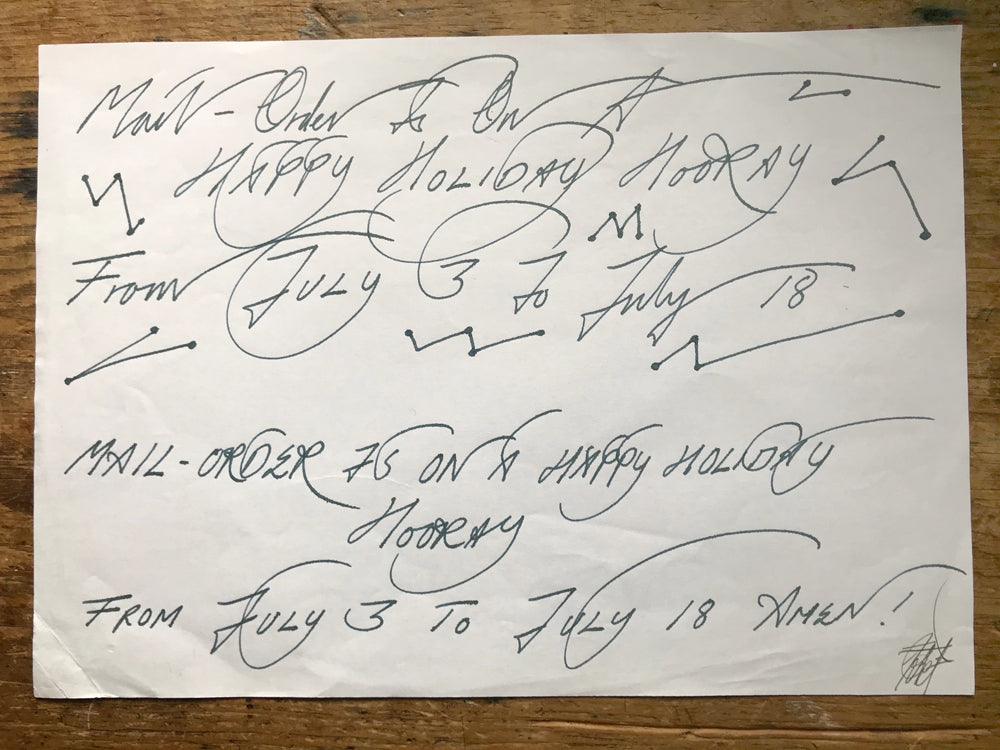 Mail-Order Is On A
HAPPY HOLIDAY HOORAY
From JULY 3 To July 18
MAIL-ORDER IS ON A HAPPY HOLIDAY
HOORAY
FROM JULY 3 TO JULY 18 AMEN!